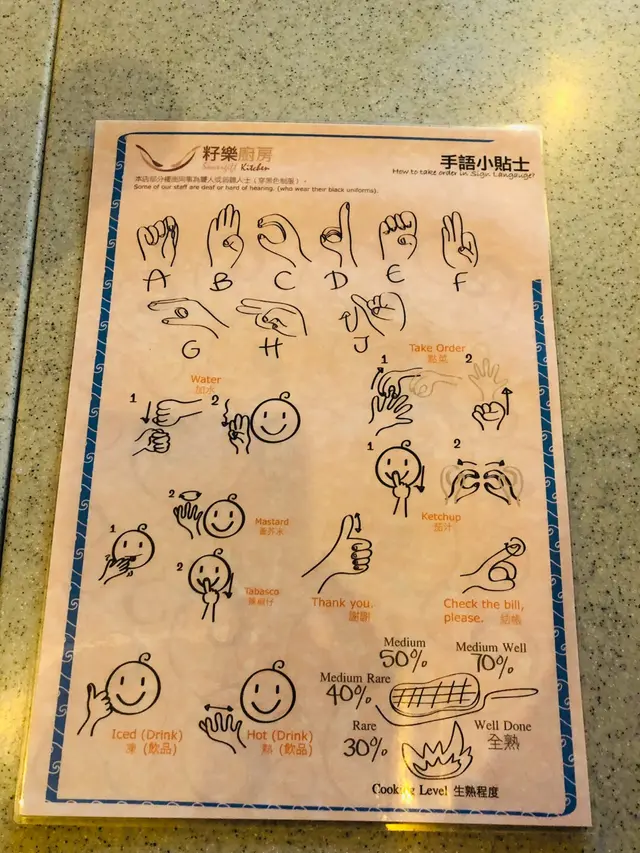 籽樂廚房
Kitchen
手語小貼士
How to take order in Sign Langauge?
本店部分樓面同事為聾人或弱聽人士（穿黑色制服）。
Some of our staff are deaf or hard of hearing. (who wear their black uniforms).
A B C D E F
G H J
Take Order
點菜
1 2
Water
加水
1 2
1 2
Ketchup
茄汁
2
Mustard
1
2
Tabasco
辣椒仔
Thank you.
謝謝
Check the bill,
please. 結帳
Medium
50%
Medium Well
70%
Medium Rare
40%
Rare
30%
Well Done
全熟
Iced (Drink)
凍 (飲品)
Hot (Drink)
熱 (飲品)
Cooking Level 生熟程度